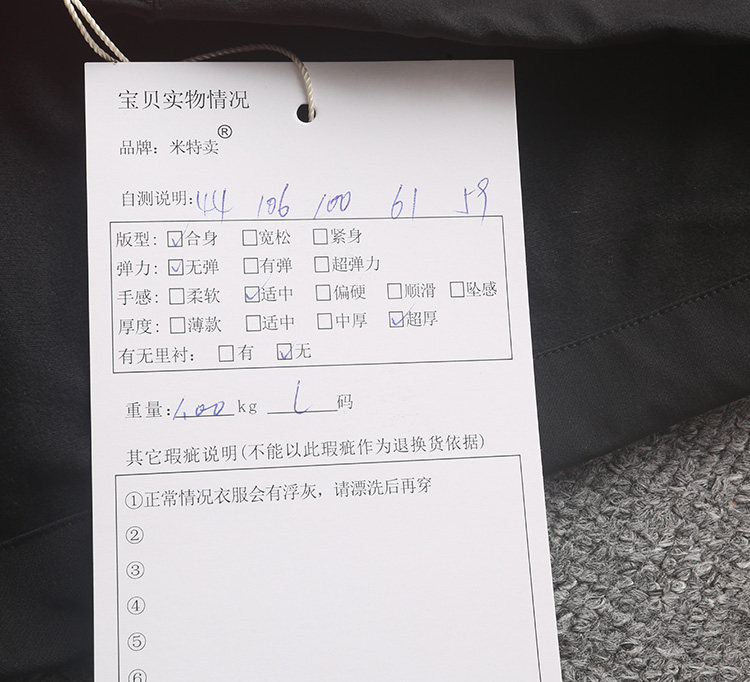 宝贝实物情况
品牌：米特卖®
自测说明:44 106 100 61 59
版型: ☑合身 □宽松 □紧身
弹力: ☑无弹 □有弹 □超弹力
手感: □柔软 ☑适中 □偏硬 □顺滑 □坠感
厚度: □薄款 □适中 □中厚 ☑超厚
有无里衬: □有 ☑无
重量:1.00 kg L 码
其它瑕疵说明(不能以此瑕疵作为退换货依据)
①正常情况衣服会有浮灰，请漂洗后再穿
②
③
④
⑤
⑥